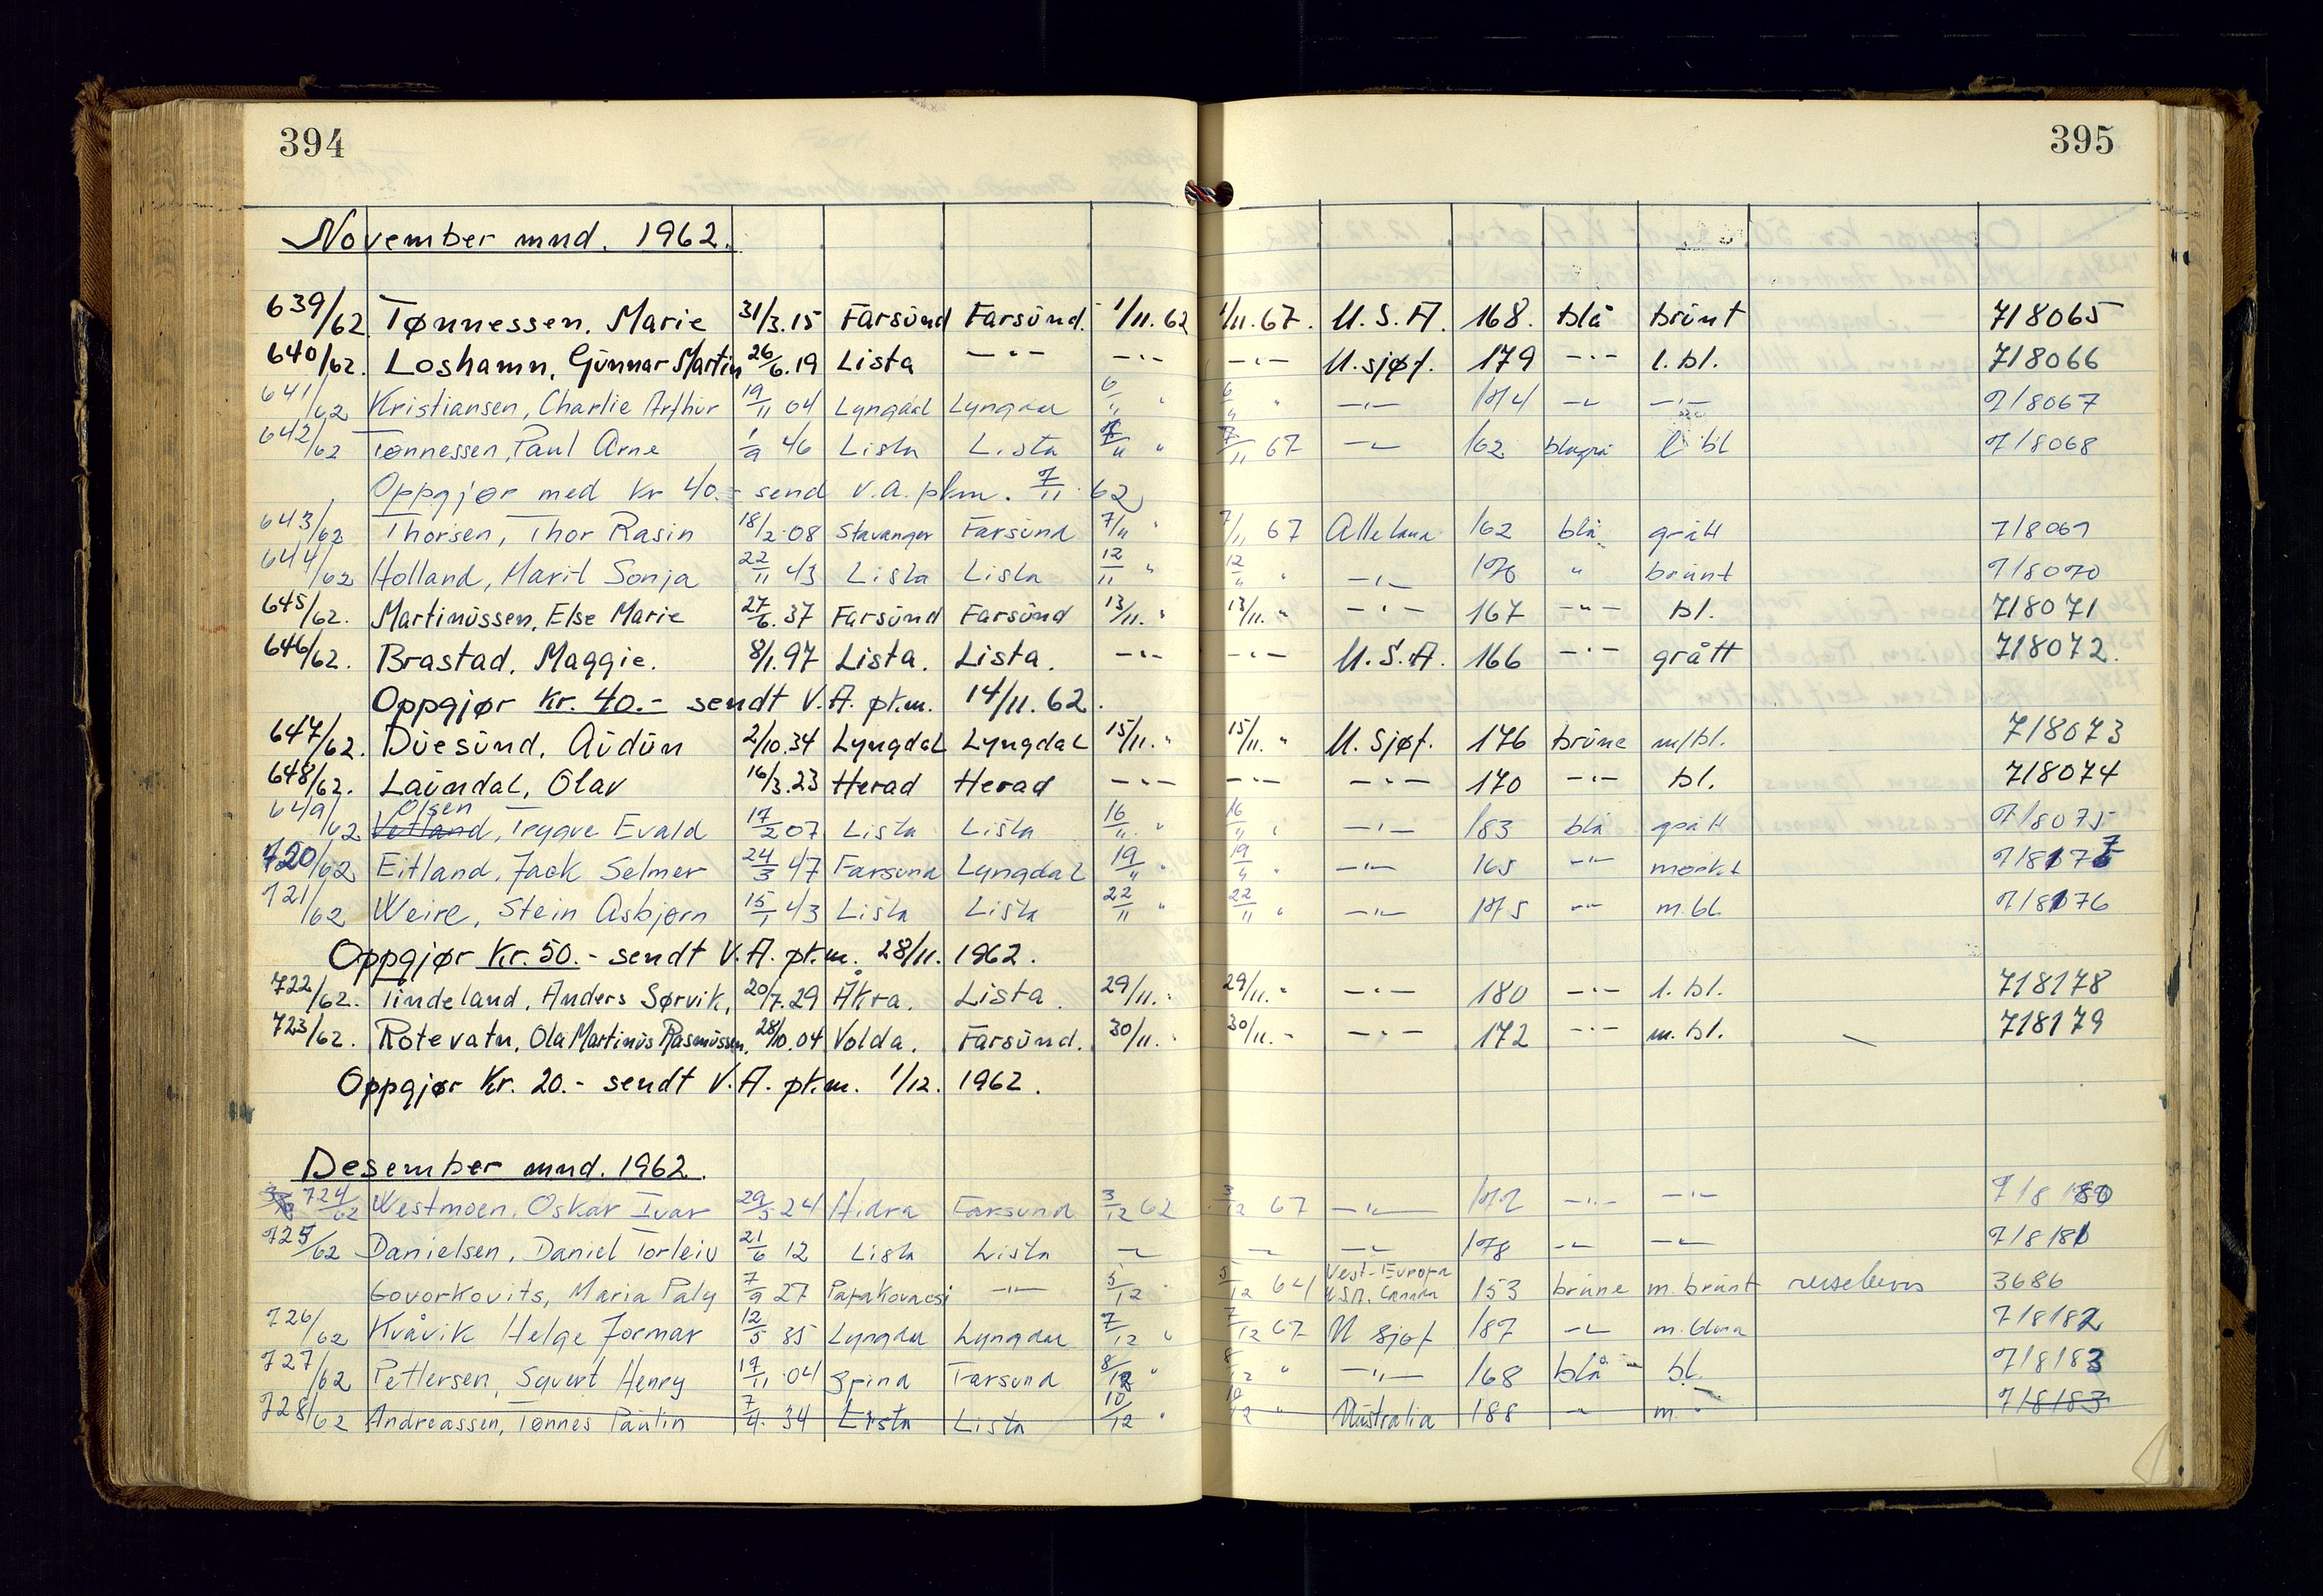 394
395
November mnd. 1962.
639/62. Tønnessen, Marie 31/3.15 Farsund Farsund. 1/11.62 1/11.67. U.S.A. 168. blå brunt 718065
640/62. Loshamn, Gunnar Martin 26/6.19 Lista —"— —"— —"— U.sjøf. 179 —"— l.bl. 718066
641/62 Kristiansen, Charlie Arthur 19/11 04 Lyngdal Lyngdal 6/11 " 6/11 " —"— 174 —"— —"— 718067
642/62 Tønnessen, Paul Arne 1/9 46 Lista Lista 7/11 " 7/11 67 —"— 162 blågrå l bl 718068
Oppgjør med kr 40.- send V.A. pkm. 7/11 62
643/62 Thorsen, Thor Rasin 18/2.08 Stavanger Farsund 7/11 " 7/11 67 Alle land 162 blå grått 718069
644/62 Holland, Marit Sonja 22/11 43 Lista Lista 12/11 " 12/11 " —"— 170 " brunt 718070
645/62. Martinussen, Else Marie 27/6.37 Farsund Farsund 13/11. " 13/11. " —"— 167 —"— bl. 718071
646/62. Brastad, Maggie. 8/1.97 Lista. Lista. —"— —"— U.S.A. 166 —"— grått 718072.
Oppgjør kr. 40.- sendt V.A. pk.m. 14/11.62.
647/62. Duesund, Audun 2/10.34 Lyngdal Lyngdal 15/11. " 15/11. " U.Sjøf. 176 brune m/bl. 718073
648/62. Laundal, Olav 16/3.23 Herad Herad —"— —"— —"— 170 —"— bl. 718074
Olsen
649/62 Vetland, Trygve Evald 17/2 07 Lista Lista 16/11. " 16/11 " —"— 183 blå grått 718075
720/62 Eitland, Jack Selmer 24/3 47 Farsund Lyngdal 19/11 " 19/11 " —"— 165 —"— mørkt 718177
721/62 Weire, Stein Asbjørn 15/1 43 Lista Lista 22/11 " 22/11 " —"— 175 —"— m.bl. 718176
Oppgjør Kr. 50.- sendt V.A. pk.m. 28/11. 1962.
722/62. Tindeland, Anders Sørvik, 20/7.29 Åkra. Lista. 29/11. " 29/11. " —"— 180 —"— l.bl. 718178
723/62. Rotevatn, Ola Martinus Rasmussen, 28/10.04 Volda. Farsund. 30/11. " 30/11. " —"— 172 —"— m.bl. 718179
Oppgjør Kr. 20.- sendt V.A. pk.m. 1/12. 1962.
Desember mnd. 1962.
724/62 Westmoen, Oskar Ivar 29/5 24 Hidra Farsund 3/12 62 3/12 67 —"— 172 —"— —"— 718180
725/62 Danielsen, Daniel Torleiv 21/6 12 Lista Lista —"— —"— —"— 178 —"— —"— 718181
Govorkovits, Maria Paly 7/9 27 Papakovacsi —"— 5/12 " 5/12 64 Vest-Europa U.S.A. Canada 153 brune m.brunt reisebevis 3686
726/62 Kvåvik Helge Jormar 12/5 35 Lyngdal Lyngdal 7/12 " 7/12 67 U Sjøf 187 —"— m.blond 718182
727/62 Pettersen, Syvert Henry 17/11.04 Spind Farsund 8/12 " 8/12 " —"— 168 blå bl. 718183
728/62 Andreassen, Tønnes Paulin 7/4. 34 Lista Lista 10/12 " 10/12 " Australia 188 —"— m. " 718183